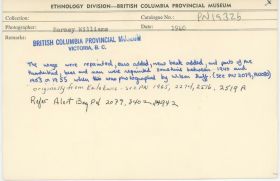 ETHNOLOGY DIVISION—BRITISH COLUMBIA PROVINCIAL MUSEUM
Collection: Catalogue No.: PN 1932b
Photographer: Barney Williams Date: 1960
Remarks:
BRITISH COLUMBIA PROVINCIAL MUSEUM
VICTORIA, B. C.
The wings were repainted, ears added, new beak added, and parts of the
Thunderbird, bear and man were repainted sometime between 1940 and
1953 or 1955 when this was photographed by Wilson Duff. (see PN 2079,
originally from Kalokwis - see PN 1965, 2274, 2516, 2519 A
Refer Alert Bay PN 2079, 3402